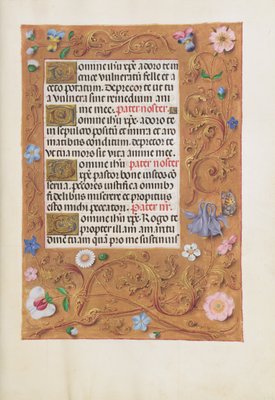 Domine ihu xpe adoro te in
cruce vulneratu felle et a
ceto potatum. Deprecor te ut tu
a vulnera sint remedium ani
me mee. Pater noster.
Domine ihu xpe adoro te
in sepulcro positu et mirra et aro
matibus conditum. deprecor te
ut tua mors sit vita anime mee.
Domine ihu pater noster
xpe pastor bone iustos co
serva. peccores iustifica omnibz
fidelibus miserere et propitius
esto michi peccatori. Pater nr.
Domine ihu xpe Rogo te
propter illam amaritu
dine tuam qua pro me sustinuisti